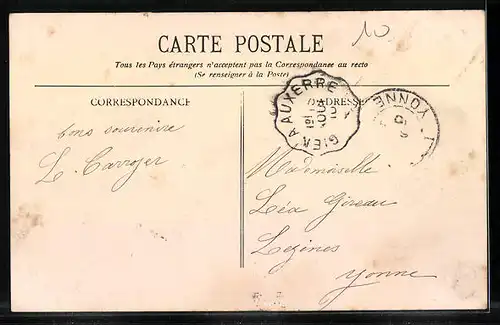 10
CARTE POSTALE
Tous les Pays étrangers n'acceptent pas la Correspondance au recto
(Se renseigner à la Poste)
CORRESPONDANCE
ADRESSE
GIEN A AUXERRE
YONNE
bons souvenirs
L. Carroger
Mademoiselle
Léa Gireau
Lezines
Yonne